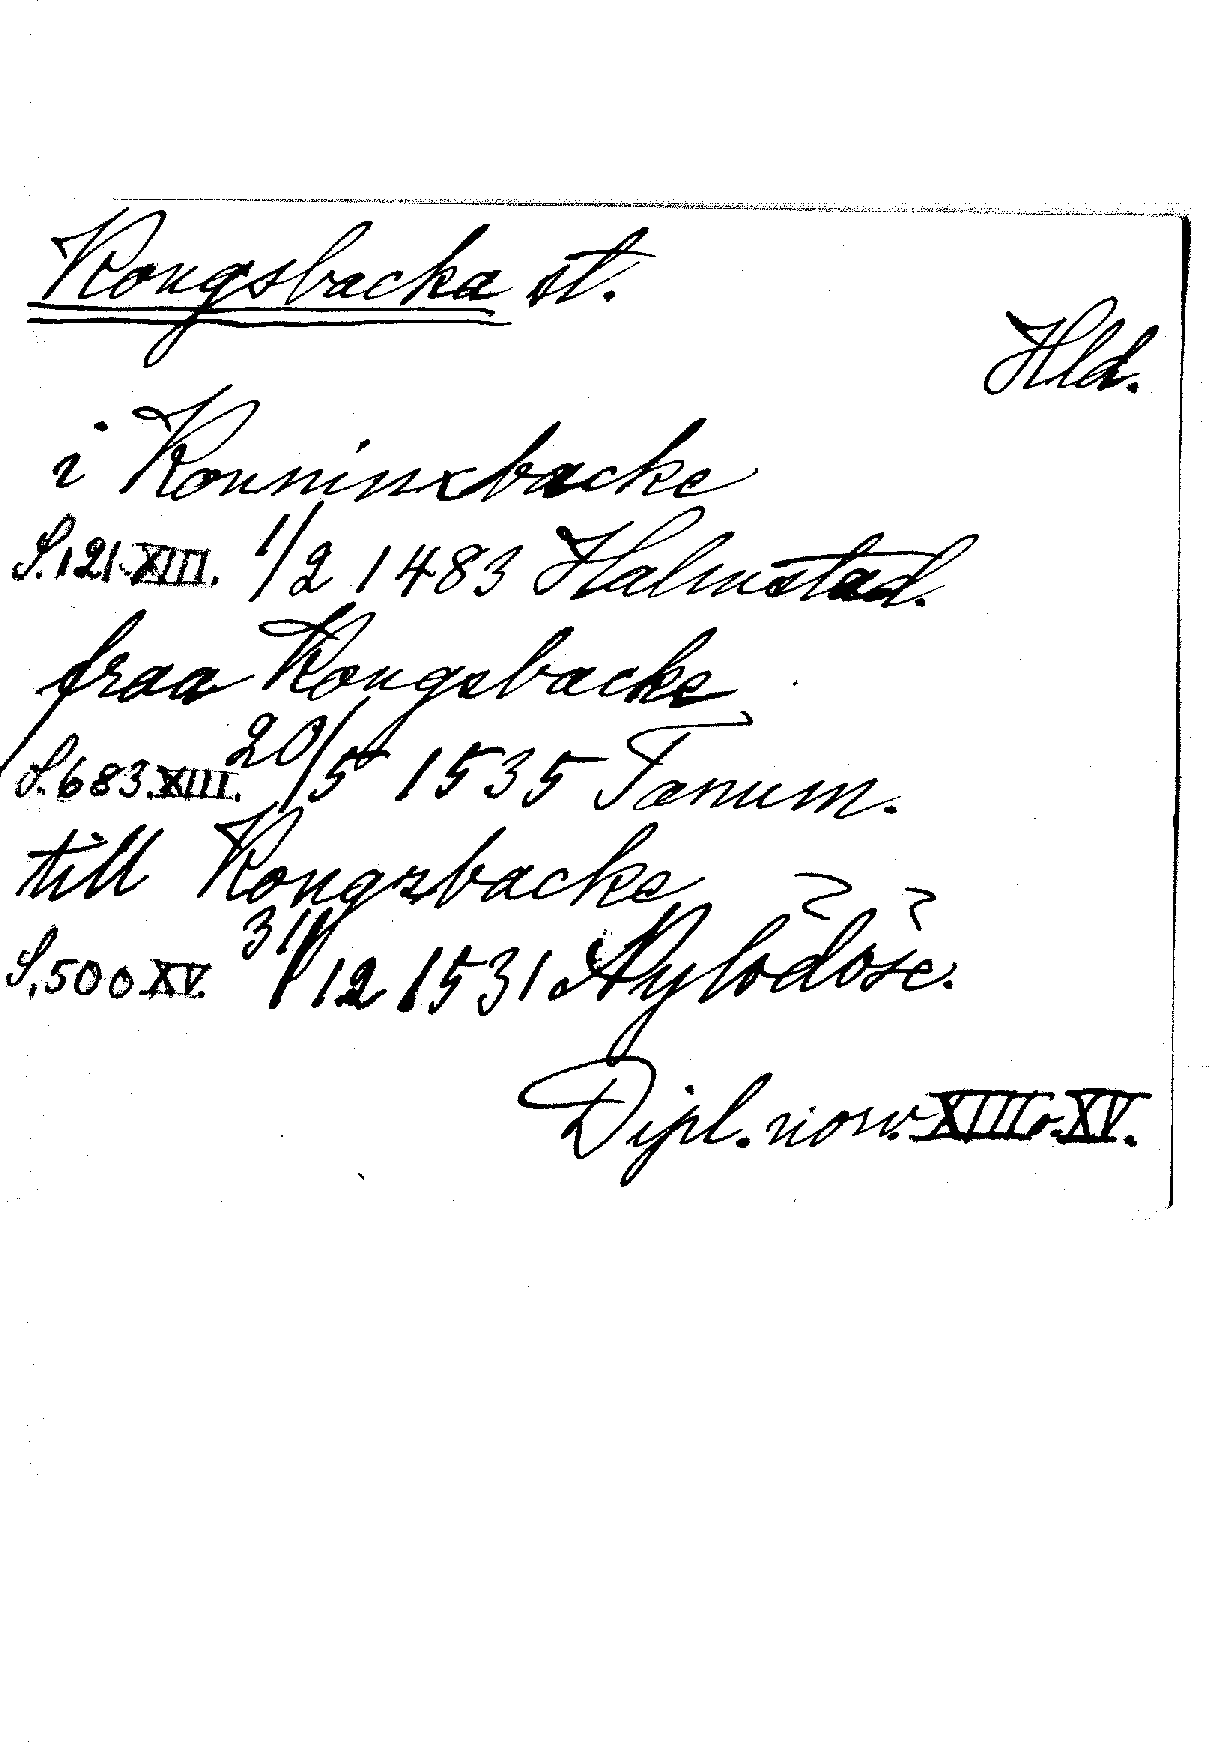 Kongsbacka st.
Hld.
i Konninxbacke
S. 121 XIII. 1/2 1483 Halmstad.
fraa Kongsbacke
S. 683 XIII. 20/5 1535 Tanum.
till Kongzbacke
S. 500 XV. 31/12 1531 Nylödöse.
Dipl. norv. XIII o. XV.